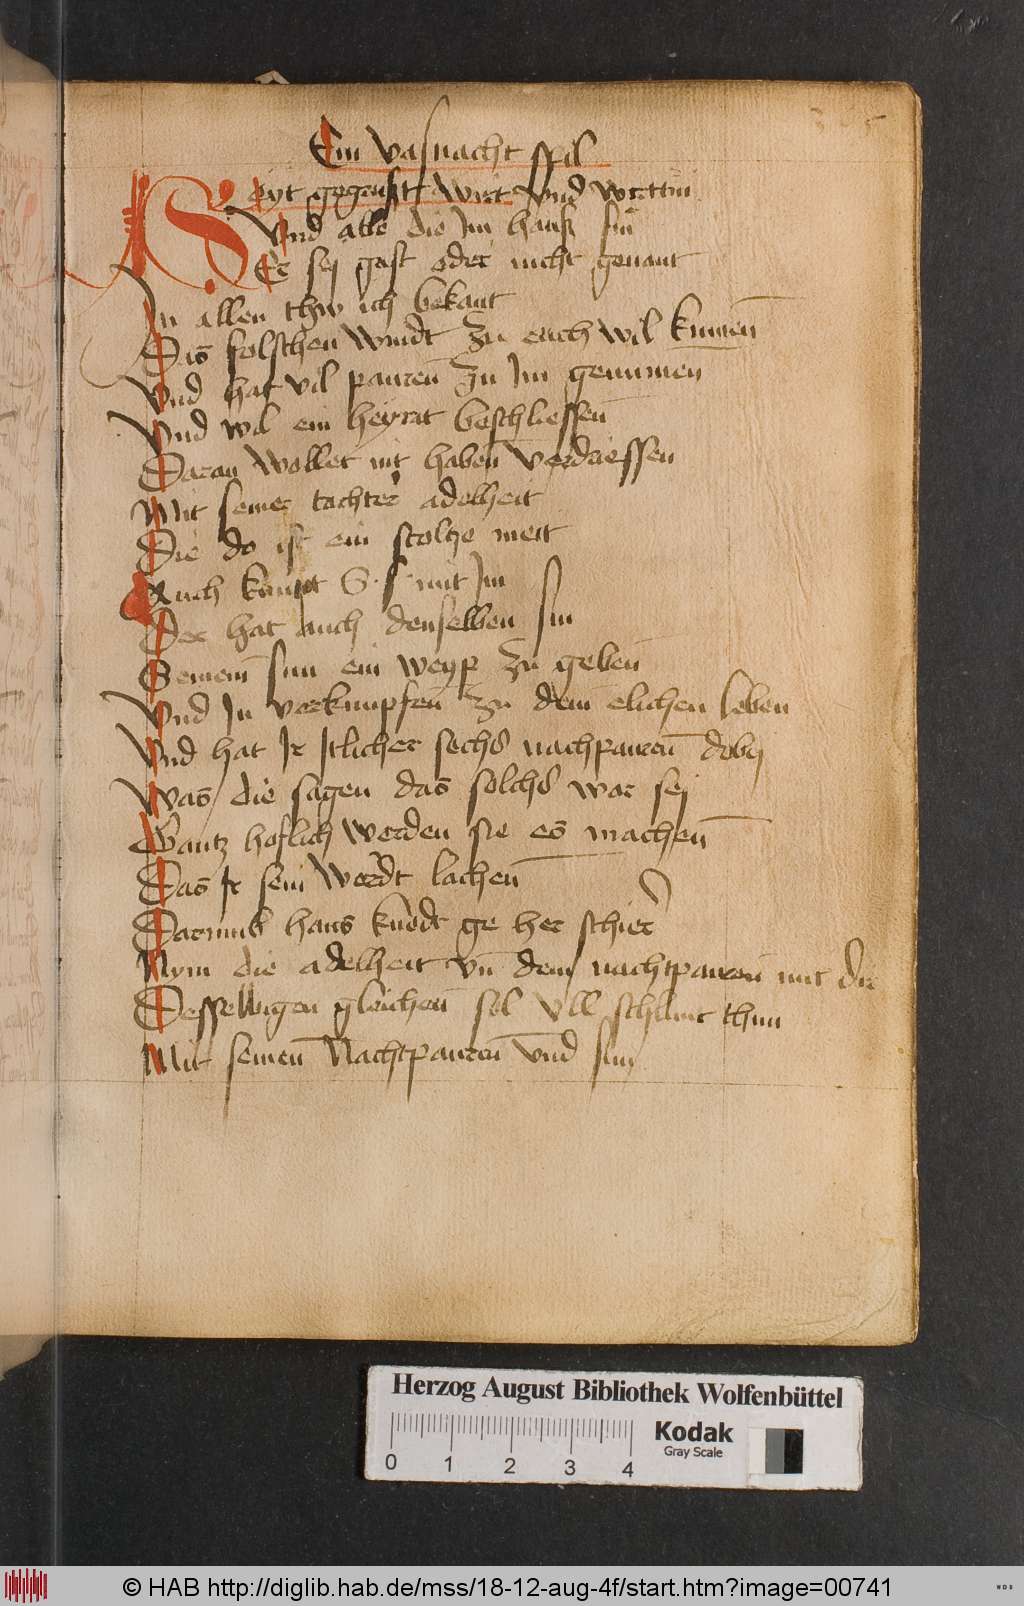 365
Ein vasnacht spil
Seyt gegrust Wirt vnd wirttin
Vnd alle die Im hauß sin
Er sej gast oder nicht genant
In allen thw ich bekant
Das solschen Windt zu euch wil kumen
Vnd hat vil pauren zu Im genumen
Vnd wil ein heyrat beschliessen
Daran Wollet nit haben verdriessen
Mit seiner tachter adelheit
Die do ist ein stoltze meit
Auch kumpt S. f mit Im
Der hat auch denselben sin
Seinem sun ein weyp zu geben
Vnd In vorknupfen zu dem elichen leben
Vnd hat Ir Itlicher sechs nachpauren dobej
Was die sagen das solchs wor sej
Gantz hoflich werden sie es machen
Das Ir sein Werdt lachen
Darumb hans knedt ge her schier
Nym die adelheit vn dein nachtpauren mit dir
Desselbigen gleichen sol Vll schlunt thun
Mit seinen Nachtpauren vnd sun
Herzog August Bibliothek Wolfenbüttel
Kodak
Gray Scale
0 1 2 3 4
© HAB http://diglib.hab.de/mss/18-12-aug-4f/start.htm?image=00741